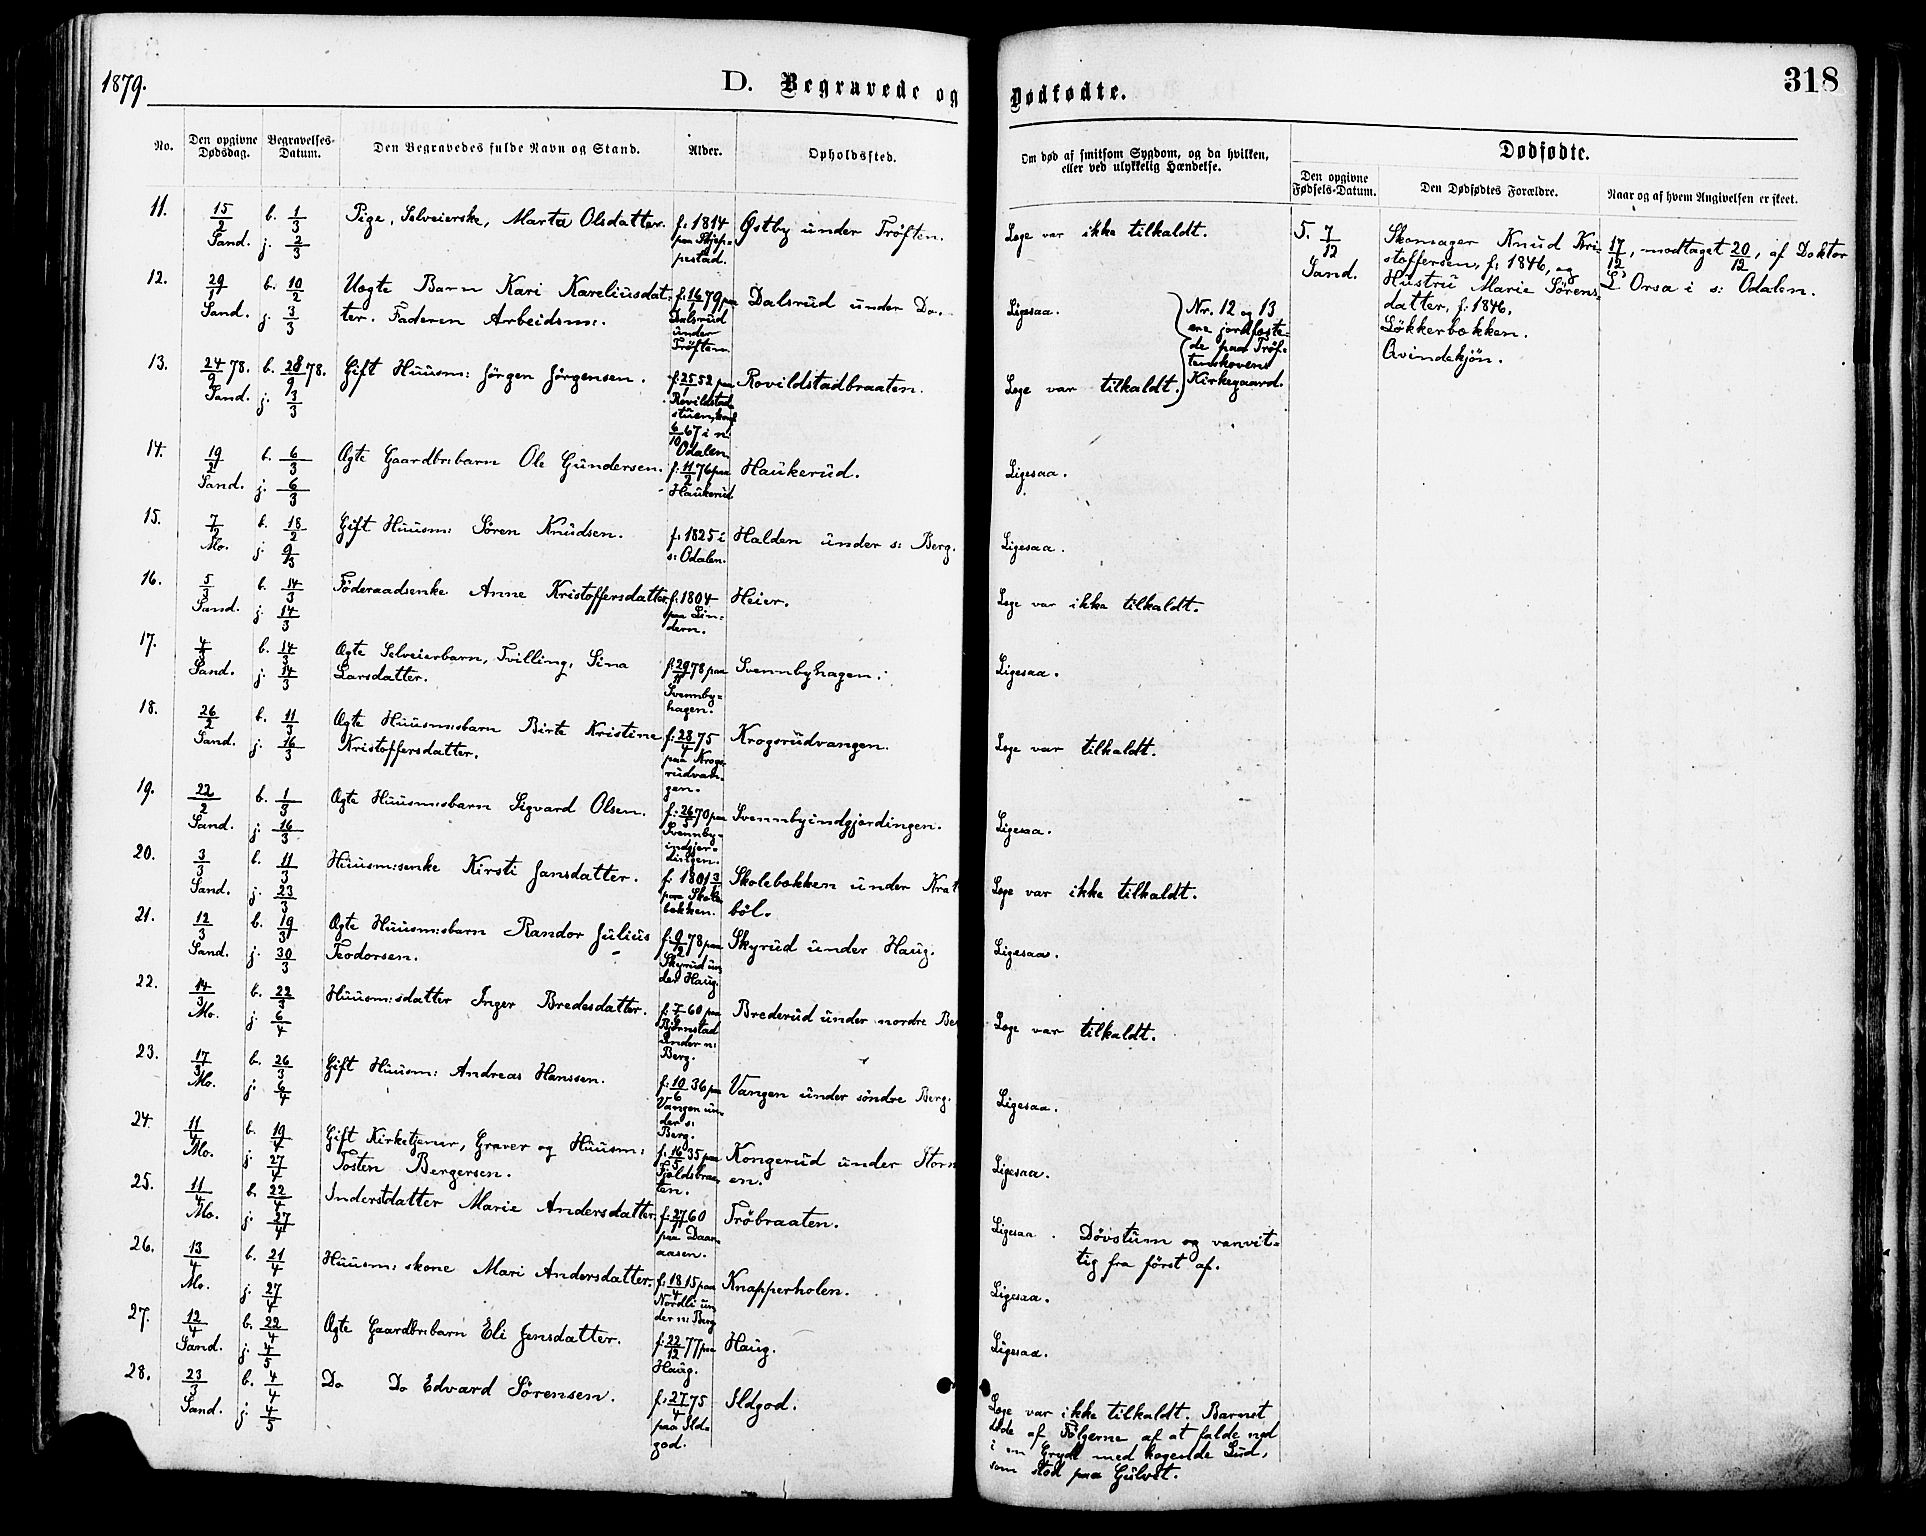 1879.
D. Begravede og Dødfødte.
318
No.
Den opgivne Dødsdag.
Begravelses-Datum.
Den Begravedes fulde Navn og Stand.
Alder.
Opholdssted.
Om død af smitsom Sygdom, og da hvilken,
eller ved ulykkelig Hændelse.
Dødfødte.
Den opgivne Fødsels-Datum.
Den Dødfødtes Forældre.
Naar og af hvem Angivelsen er skeet.
11. 15/2 Sand. b. 1/3 j. 2/3 Pige, Selveierske, Marta Olsdatter. f. 1814 paa Østby under Trøften. Læge var ikke tilkaldt.
5. 7/12 Sand.
Skomager Knud Kri-
stoffersen, f. 1846, og
Hustru Marie Sørens-
datter, f. 1846.
Løkkerbækken.
Avindekjøn.
17/12, modtaget 20/12, af Doktor
L. Orsa i s: Odalen.
12. 29/1 Sand. b. 10/2 j. 3/3 Uægte Barn Kari Kareliusdat-
ter. Faderen Arbeidsm:. f. 16/1 79 paa
Dalsrud
under
Trøften
Dalsrud under Do.
Ligesaa.
Nr. 12 og 13
ere jordfæste-
de paa Trøf-
tenskovens
Kirkegaard.
13. 24/9 78. Sand. b. 28/9 78. j. 3/3 Gift Huusm: Jørgen Jørgensen. f. 25/1 52 paa
Rovildstad-
stuen,
6/10 67 i n:
Odalen.
Rovildstadbraaten.
Læge var tilkaldt.
14. 19/2 Sand. b. 6/3 j. 6/3 Ægte Gaardbr:barn Ole Gundersen. f. 11/2 76 paa
Haukerud
Haukerud.
Ligesaa.
15. 7/2 Mo. b. 18/2 j. 9/3 Gift Huusm: Søren Knudsen. f. 1825 i
s: Odalen.
Halden under s: Berg.
Ligesaa.
16. 5/3 Sand. b. 14/3 j. 14/3 Føderaadsenke Anne Kristoffersdatter f. 1804
paa Lin-
dern.
Heier.
Læge var ikke tilkaldt.
17. 4/3 Sand. b. 14/3 j. 14/3 Ægte Selveierbarn, Tvilling, Sina
Larsdatter.
f. 29/11 78 paa
Svennby-
hagen.
Svennbyhagen.
Ligesaa.
18. 26/2 Sand. b. 11/3 j. 16/3 Ægte Huusm:sbarn Birte Kristine
Kristoffersdatter.
f. 28/4 75
paa Krogs-
rudvan-
gen.
Krogsrudvangen.
Læge var tilkaldt.
19. 22/2 Sand. b. 1/3 j. 16/3 Ægte Huusm:sbarn Sigvard Olsen. f. 26/5 70 paa
Svennby-
indgjer-
dingen.
Svennbyindgjærdingen.
Ligesaa.
20. 3/3 Sand. b. 11/3 j. 23/3 Huusm:senke Kirsti Jansdatter.
paa Skole-
bækken.
Skolebækken under Krat
bøl.
Læge var ikke tilkaldt.
21. 12/3 Sand. b. 19/3 j. 30/3 Ægte Huusm:sbarn Randor Julius
Teodorsen.
f. 9/2 78 paa
Skyrud un-
der Haug.
Skyrud under Haug.
Ligesaa.
22. 14/3 Mo. b. 22/3 j. 6/4 Huusm:sdatter Inger Bredesdatter.
Bjørnstad
under n:
Berg.
Brederud under nordre Be
Læge var tilkaldt.
23. 17/3 Mo. b. 26/3 j. 6/4 Gift Huusm: Andreas Hanssen. f. 10/6 36 paa
Vangen un-
der s:
Berg.
Vangen under søndre Berg.
Ligesaa.
24. 11/4 Mo. b. 19/4 j. 27/4 Gift Kirketjener, Graver og Huusm:
Tosten Bergersen.
f. 16/5 35 paa
Fjeldsbraa-
ten.
Kongerud under Storn
en.
Ligesaa.
25. 11/4 Mo. b. 22/4 j. 27/4 Inderstdatter Marie Andersdatter. f. 27/11 60
paa Daar-
aasen.
Trøbraaten.
Ligesaa. Døvstum og vanvit-
tig fra først af.
26. 13/4 Mo. b. 21/4 j. 27/4 Huusm:skone Mari Andersdatter. f. 18/4 15 paa
Nordli un-
der n: Berg
Knapperholen.
Ligesaa.
27. 12/4 Sand. b. 22/4 j. 4/5 Ægte Gaardbr:barn Eli Jensdatter. f. 22/12 77 paa
Haug.
Haug.
Ligesaa.
28. 23/3 Sand. b. 4/4 j. 4/5 Do Do Edvard Sørensen. f. 27/4 75
paa Ild-
god.
Ildgod.
Læge var ikke tilkaldt. Barnet
døde af Følgerne af at falde ned
i en Gryde med kogende Lud,
som stod paa Gulvet.